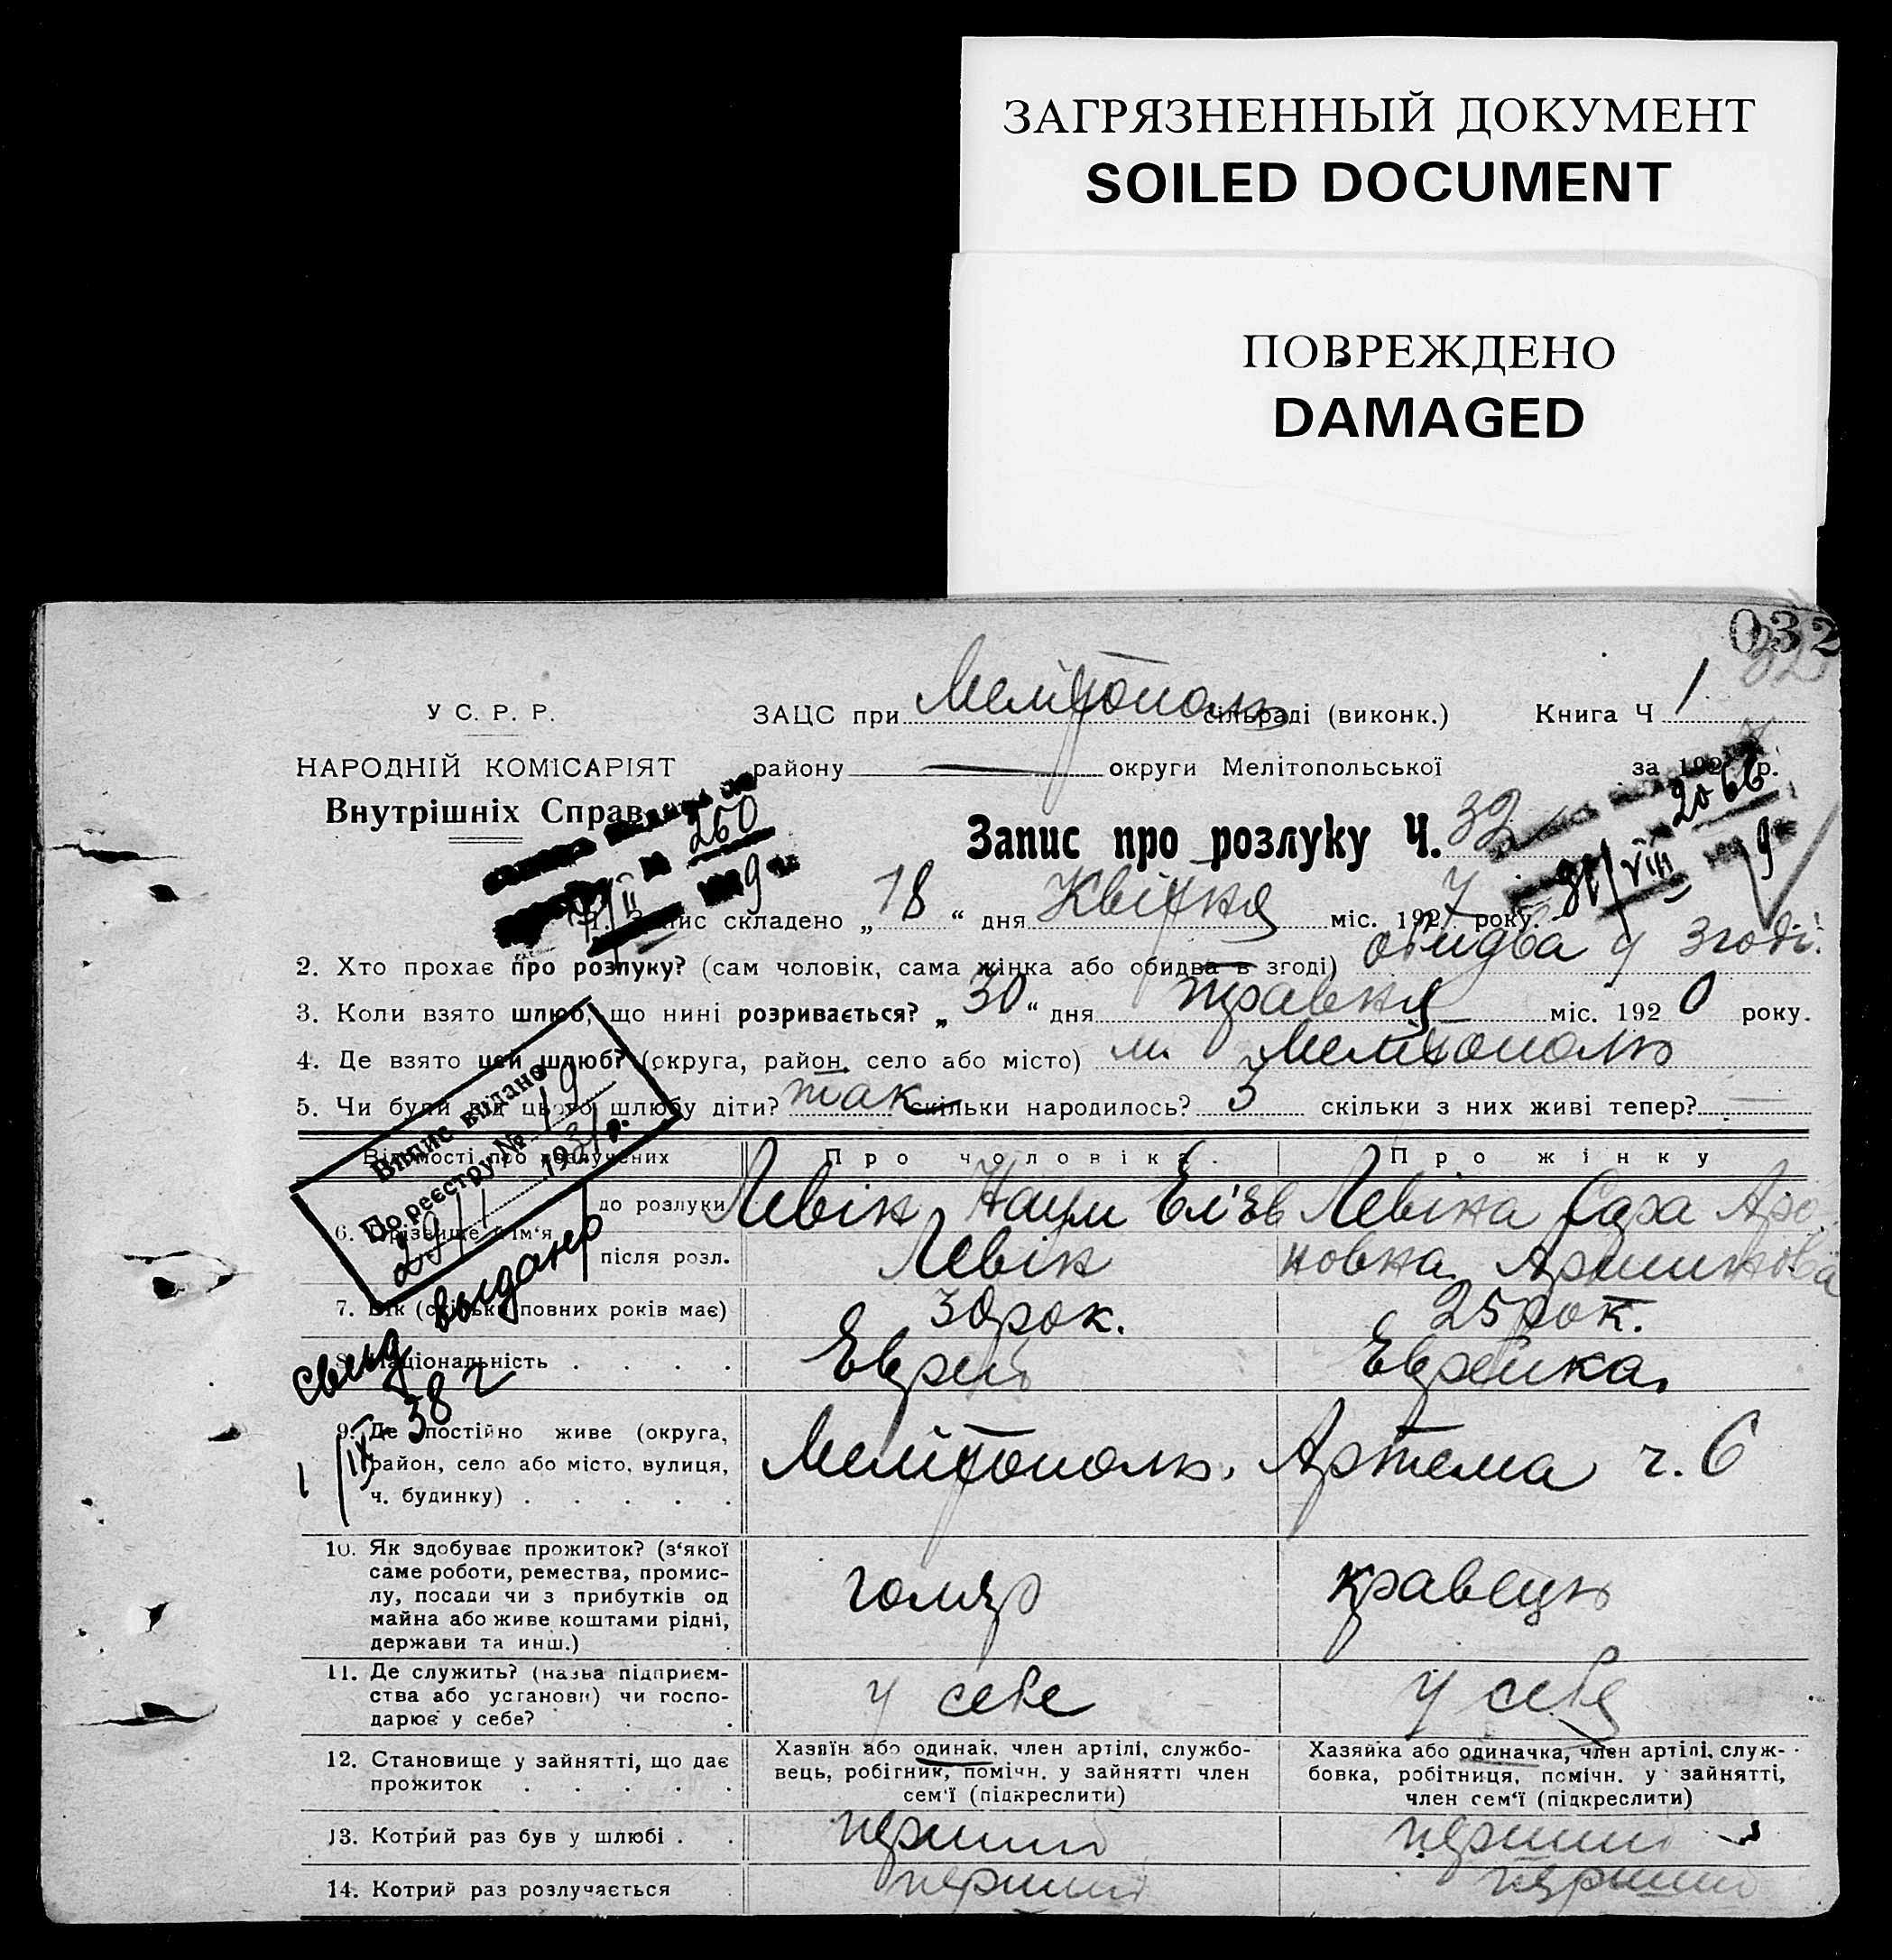 ЗАГРЯЗНЕННЫЙ ДОКУМЕНТ
SOILED DOCUMENT
ПОВРЕЖДЕНО
DAMAGED
032
32
У С. Р. Р.
НАРОДНІЙ КОМІСАРІЯТ
Внутрішніх Справ
ЗАЦС при Мелітополь сільраді (виконк.) Книга Ч 1
району — округи Мелітопольської за 192 р.
260
2066
Запис про розлуку Ч. 32
складено „18“ дня Квітня міс. 1927 року.
2. Хто прохає про розлуку? (сам чоловік, сама жінка або обидва в згоді) обидва у згоді.
3. Коли взято шлюб, що нині розривається? „30“ дня травня міс. 1920 року.
4. Де взято цей шлюб? (округа, район, село або місто) м. Мелітополь
5. Чи були від цього шлюбу діти? так скільки народилось? 3 скільки з них живі тепер? —
Випис видано
По реєстру № 19
29/I 1931 р.
свид выдано
382
1/IX
Відомості про розлучених Про чоловіка. Про жінку
6. Прізвище й ім‘я до розлуки Левін Наум Ел‘єв Левіна Сара Аро-
після розл. Левін новна
7. Вік (скільки повних років має) 30 рок. 25 рок.
8. Національність . . . . Еврей Еврейка
9. Де постійно живе (округа,
район, село або місто, вулиця,
ч. будинку) . . . . .
Мелітополь, Артема ч. 6
10. Як здобуває прожиток? (з‘якої
саме роботи, ремества, промис-
лу, посади чи з прибутків од
майна або живе коштами рідні,
держави та инш.)
голяр кравець
11. Де служить? (назва підприєм-
ства або установи) чи госпо-
дарює у себе?
у себе у себе
12. Становище у зайнятті, що дає
прожиток . . . . .
Хазяїн або одинак, член артілі, службо-
вець, робітник, помічн. у зайнятті член
сем‘ї (підкреслити)
Хазяйка або одиначка, член артілі, служ-
бовка, робітниця, помічн. у зайнятті,
член сем‘ї (підкреслити)
13. Котрий раз був у шлюбі . . перший перший
14. Котрий раз розлучається перший перший